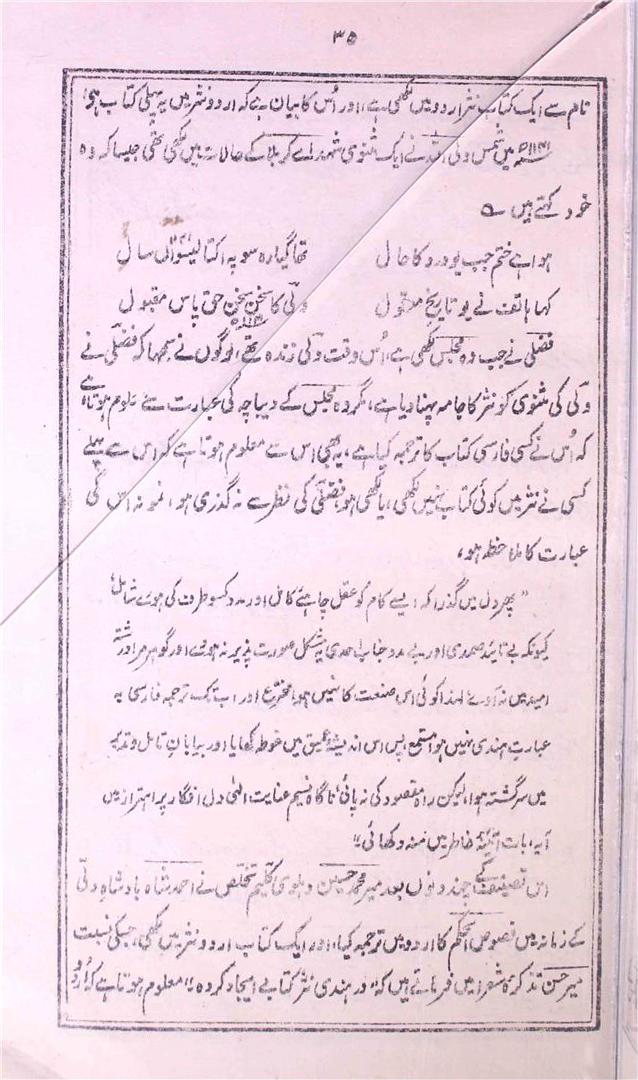 ۳۵
نام سے ایک کتاب نثر اردو میں لکھی ہے، اور اُس کا بیان ہے کہ اردو نثر میں یہ پہلی کتاب ہی،
۱۱۴۱ھ میں شمس ولی اللہ نے ایک مثنوی شہدائے کربلا کے حالات میں لکھی تھی جیسا کہ وہ
خود کہتے ہیں ؎
ہوا ہے ختم جب یو درد کا حال تھا گیارہ سو پہ اکتالیسواں سال
کہا ہاتف نے یو تاریخ معقول ولی کا سخن حق پاس مقبول
۱۱۴۱ھ
فضلی نے جب دہ مجلس لکھی ہے، اُس وقت ولی زندہ تھے، لوگوں نے سمجھا کہ فضلی نے
ولی کی مثنوی کو نثر کا جامہ پہنا دیا ہے، مگر دہ مجلس کے دیباچہ کی عبارت سے معلوم ہوتا ہے
کہ اُس نے کسی فارسی کتاب کا ترجمہ کیا ہے، یہ بھی اس سے معلوم ہوتا ہے کہ اس سے پہلے
کسی نے نثر میں کوئی کتاب نہیں لکھی، یا لکھی ہو، فضلی کی نظر سے نہ گذری ہو، نمونہ اس کی
عبارت کا ملاحظہ ہو،
”پھر دل میں گذرا کہ ایسے کام کو عقل چاہئے کامل اور مدد کسو طرف کی ہوے شامل
کیونکہ بے تائید صمدی اور بے مدد جناب احمدی یہ مشکل صورت پذیر نہ ہووے اور گوہر مراد رشتہ
امید میں نہ آوے لہذا کوئی اس صنعت کا نہیں ہوا مخترع اور اب تک ترجمہ فارسی بہ
عبارت ہندی نہیں ہوا مستمع، پس اس اندیشۂ عمیق میں غوطہ کھایا اور بیابان تامل و تدبیر
میں سرگشتہ ہوا، لیکن راہ مقصود کی نہ پائی، ناگاہ نسیم عنایت الٰہی دل افگار پر اہتزاز میں
آیہ بات آئینۂ خاطر میں منہ دکھائی“
اس تصنیف کے چند دنوں بعد میر محمد حسین دہلوی کلیم تخلص نے احمد شاہ بادشاہ دلی
کے زمانہ میں فصوص الحکم کا اردو میں ترجمہ کیا، اور ایک کتاب اردو نثر میں لکھی، جسکی نسبت
میر حسن تذکرۂ شعرا میں فرماتے ہیں کہ ”در ہندی نثر کتابے ایجاد کردہ“ معلوم ہوتا ہے کہ اُردو